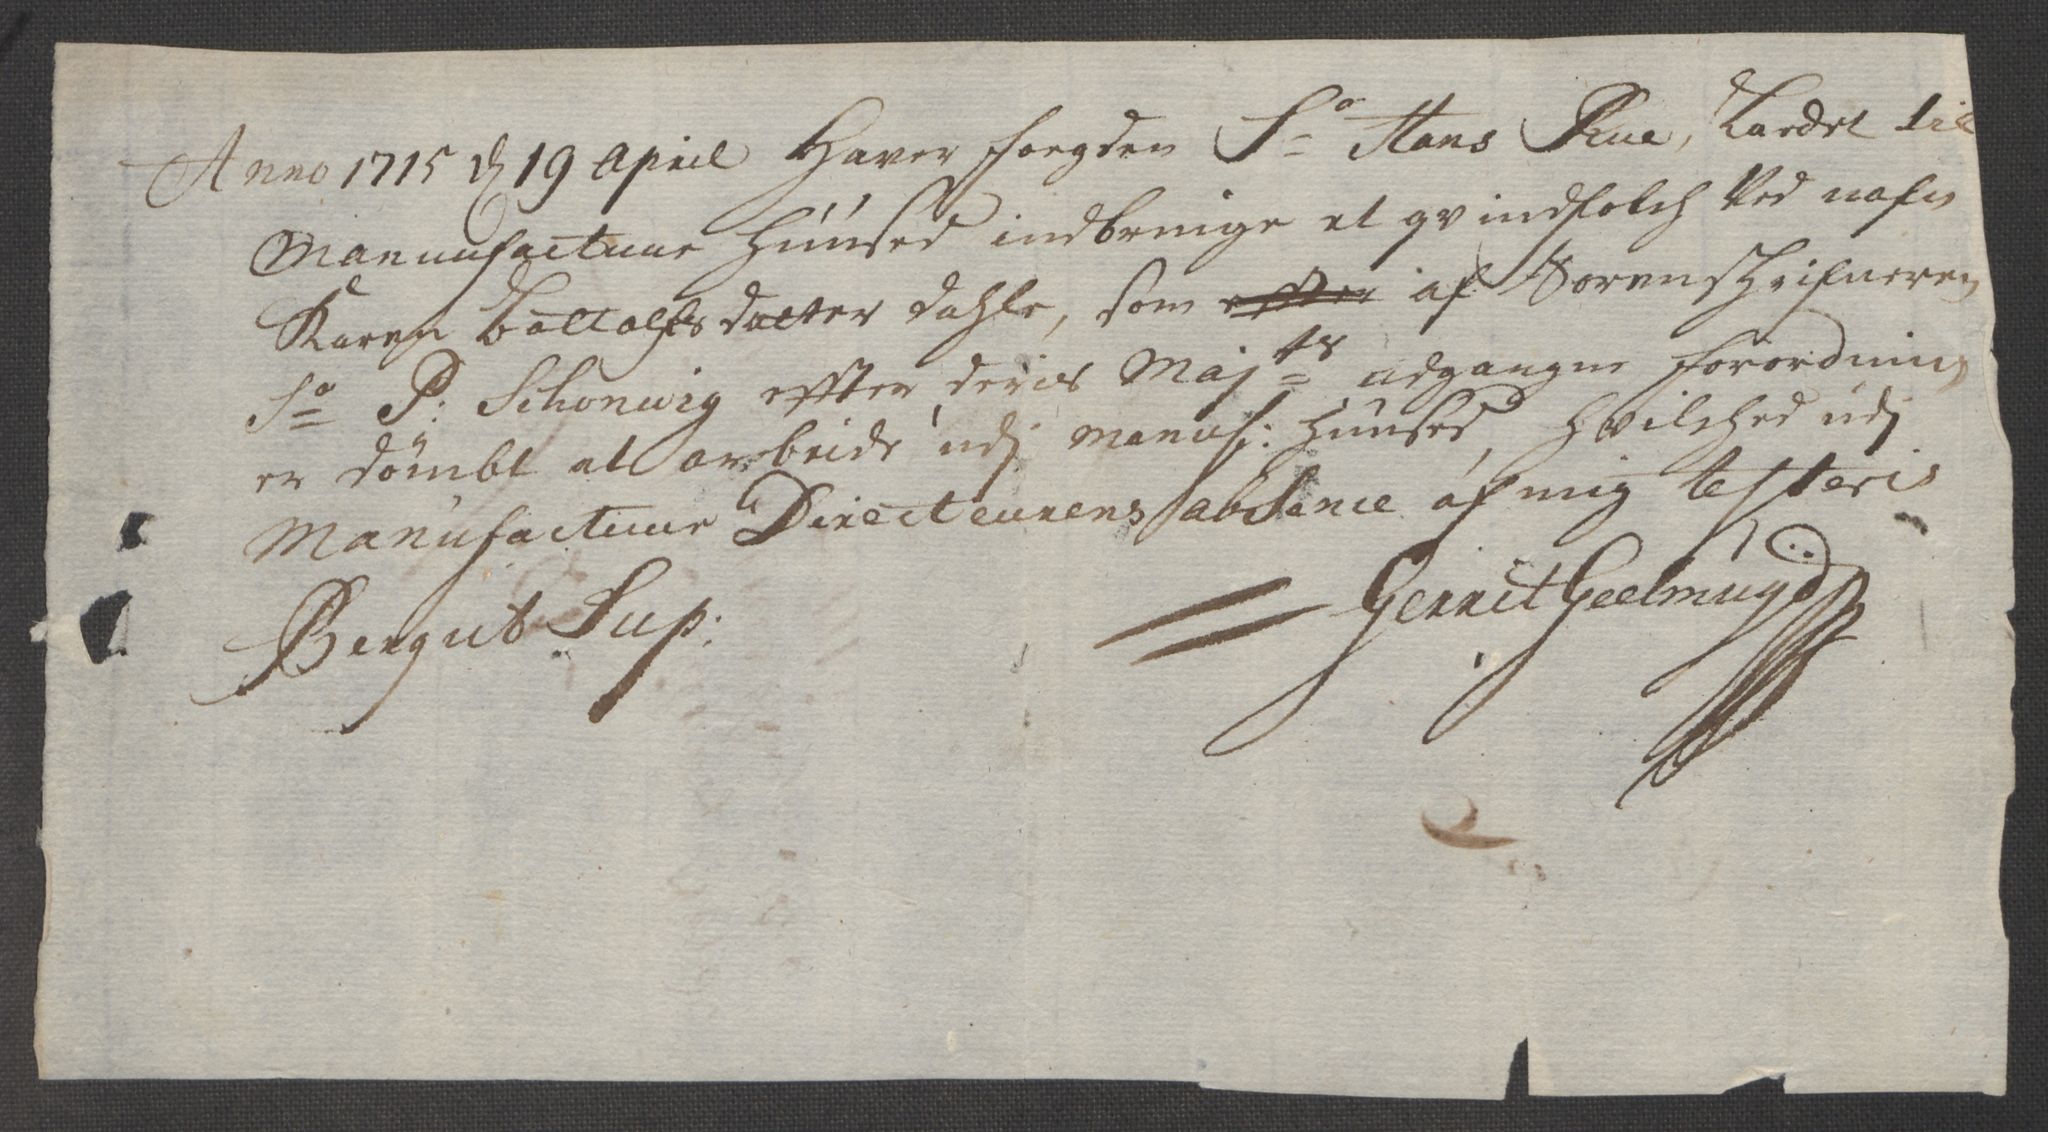 Anno 1715 d 19 April Haver foegden Sr Hans Rue, Ladet til
Manunfactuur Hüüsed indbringe et qvindfolch Ved nafn
Karen Battalfsdatter dahle, som effter af Sorenschrifueren
Sr P: Schonwig effter deris Majts udgangne forordning
er dömbt at arbeide udj Manuf: Hüüsed, hvilched udj
Manufactuur Directeurens absence af mig testeris
Bergut Sup:
Gerrit Geelmuyd